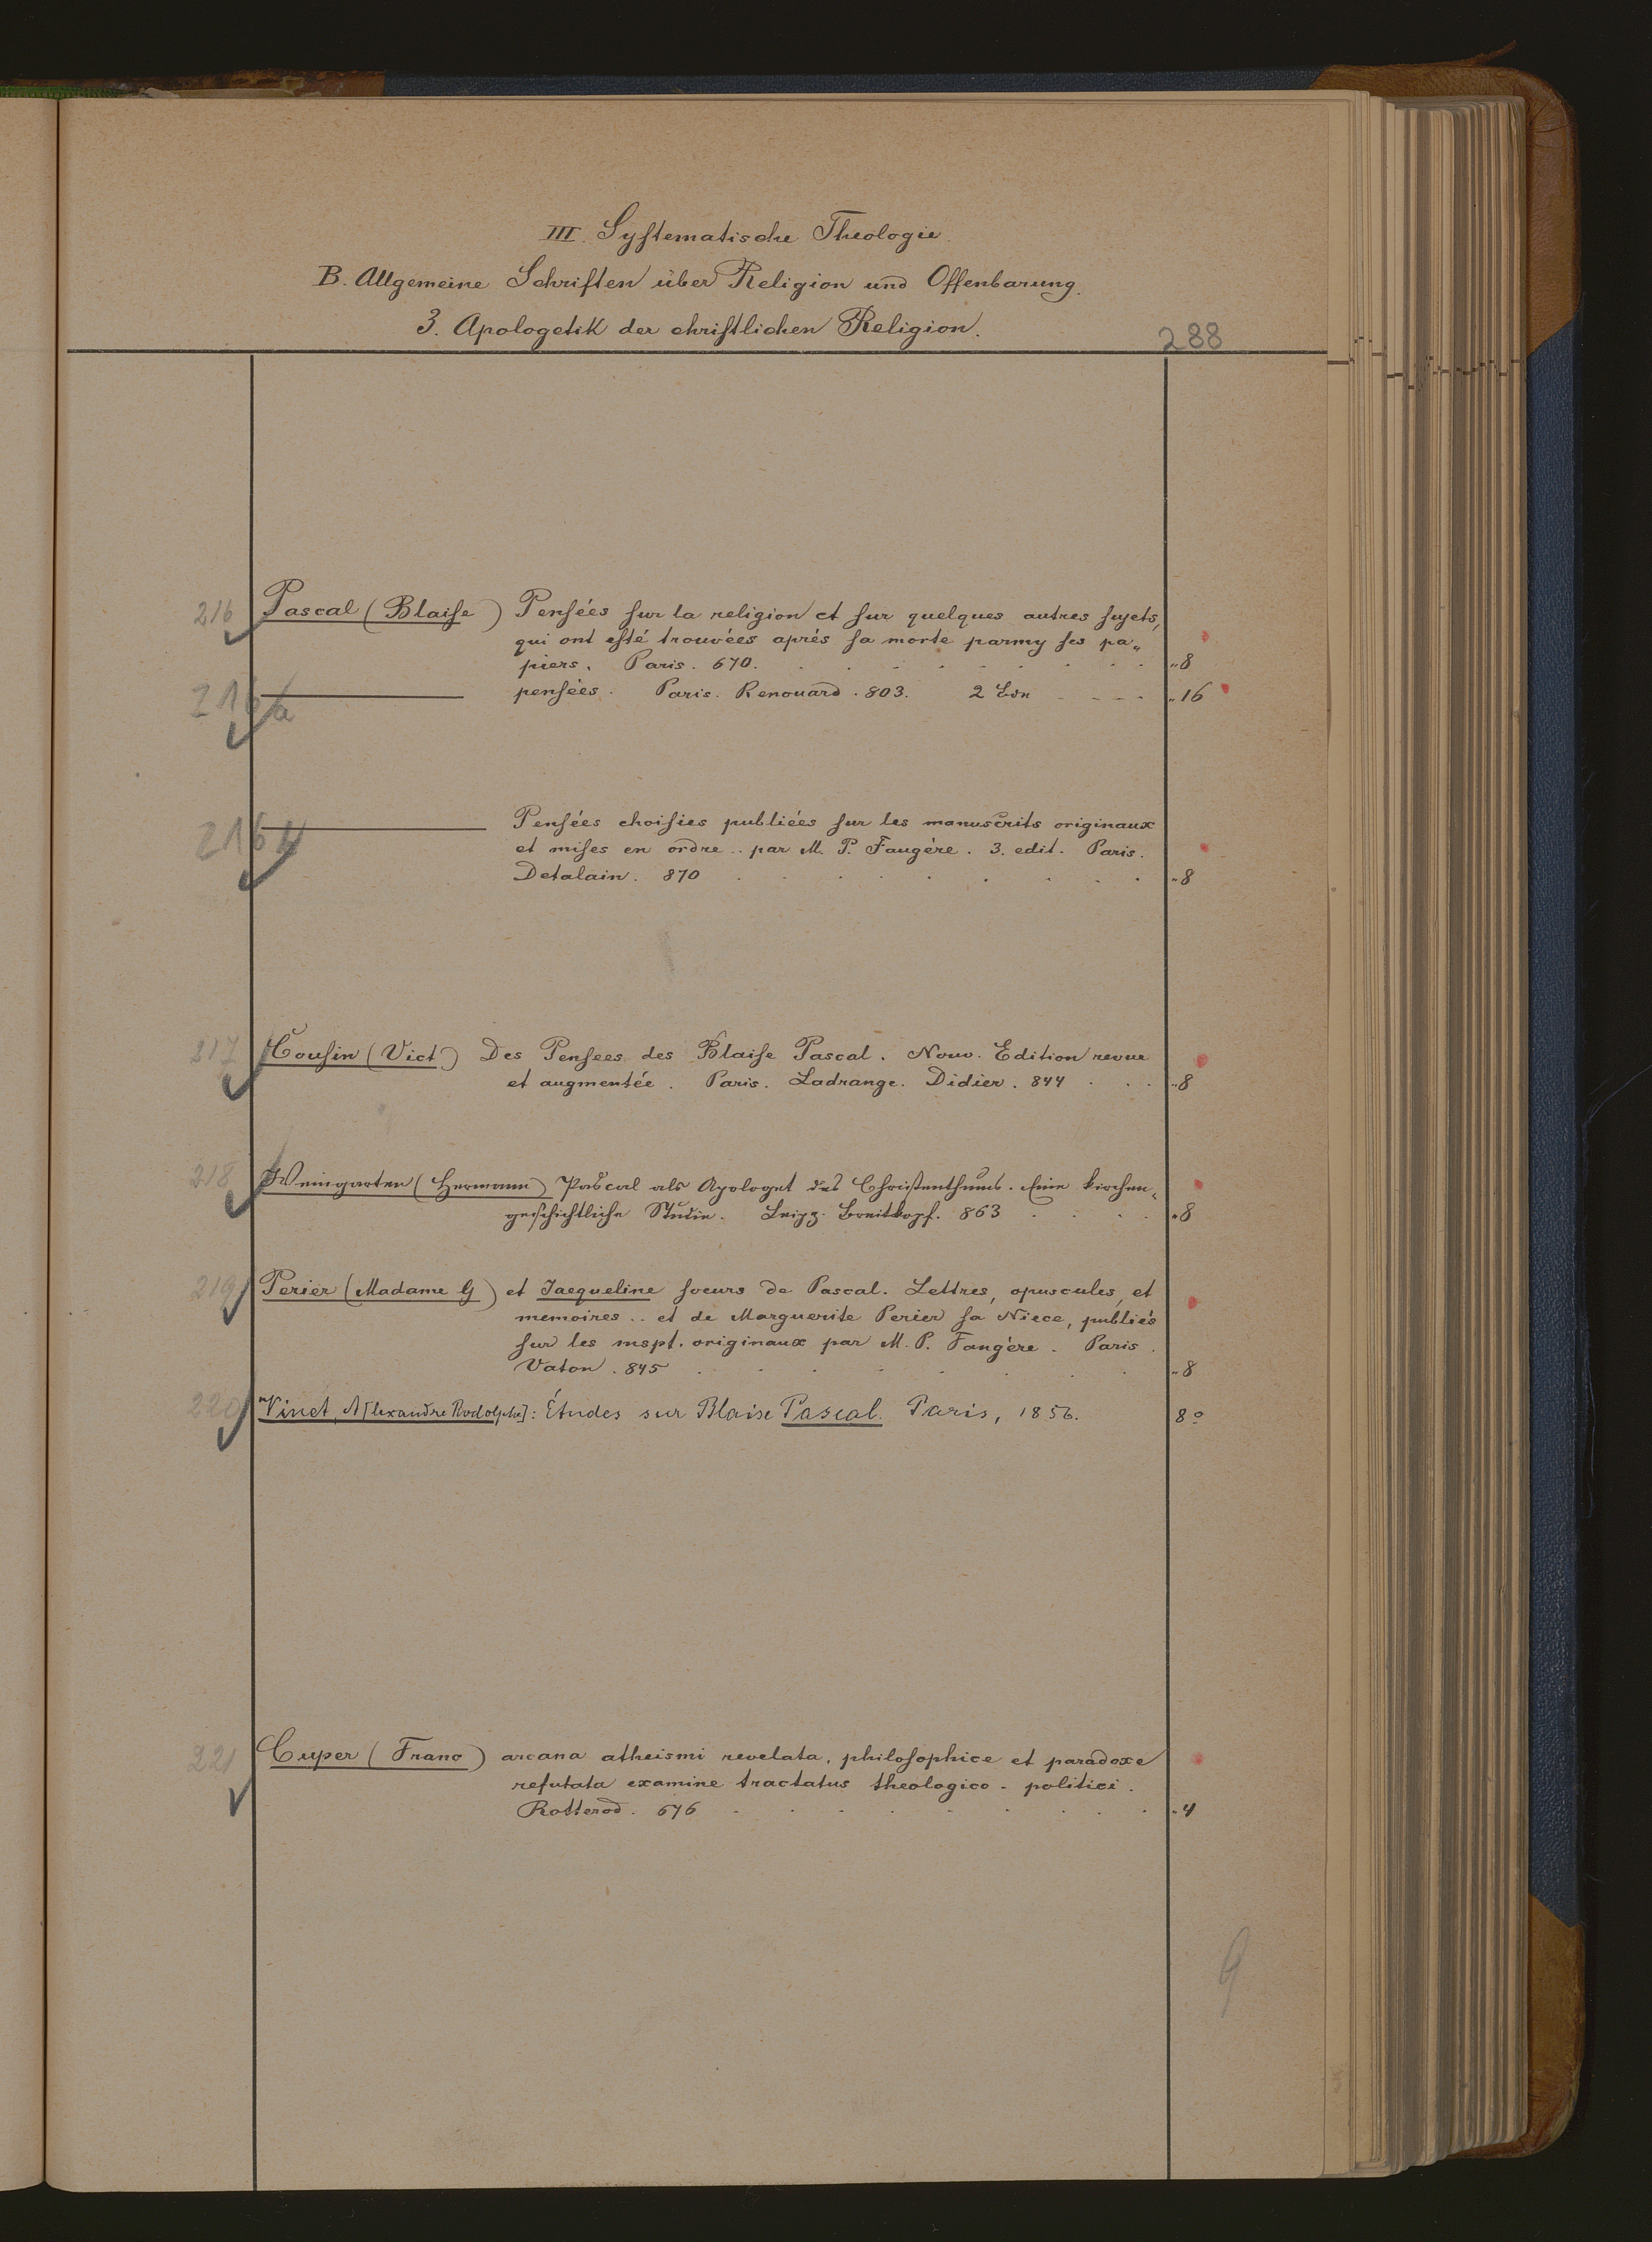 III. Systematische Theologie.
B. Allgemeine Schriften über Religion und Offenbarung.
3. Apologetik der christlichen Religion.
288
216 Pascal (Blaise) Pensées sur la religion et sur quelques autres sujets,
qui ont esté trouvées aprés sa morte parmy ses pa„
piers. Paris. 670. „8
216a pensées. Paris. Renouard. 803. 2 Bdn „16
216b Pensées choisies publiées sur les manuscrits originaux
et mises en ordre .. par M. P. Faugére. 3. edit. Paris.
Detalain. 870 „8
217 Cousin (Vict) Des Pensees des Blaise Pascal. Nouv. Edition revue
et augmentée. Paris. Ladrange. Didier. 844 „8
218 Weingarten (Hermann) Pascal als Apologet des Christenthums. Eine kirchen„
geschichtliche Studie. Leipz. Breitkopf. 863 „8
219 Perier (Madame G) et Jacqueline soeurs de Pascal. Lettres, opuscules, et
memoires .. et de Marguerite Perier sa Niece, publiés
sur les mspt. originaux par M. P. Faugére. Paris.
Vaton. 845 „8
220 Vinet, A[lexandre Rodolphe]: Études sur Blaise Pascal. Paris, 1856. 8o
221 Cuper (Franc) arcana atheismi revelata, philosophice et paradoxe
refutata examine tractatus theologico-politici.
Rotterod. 676 „4
9